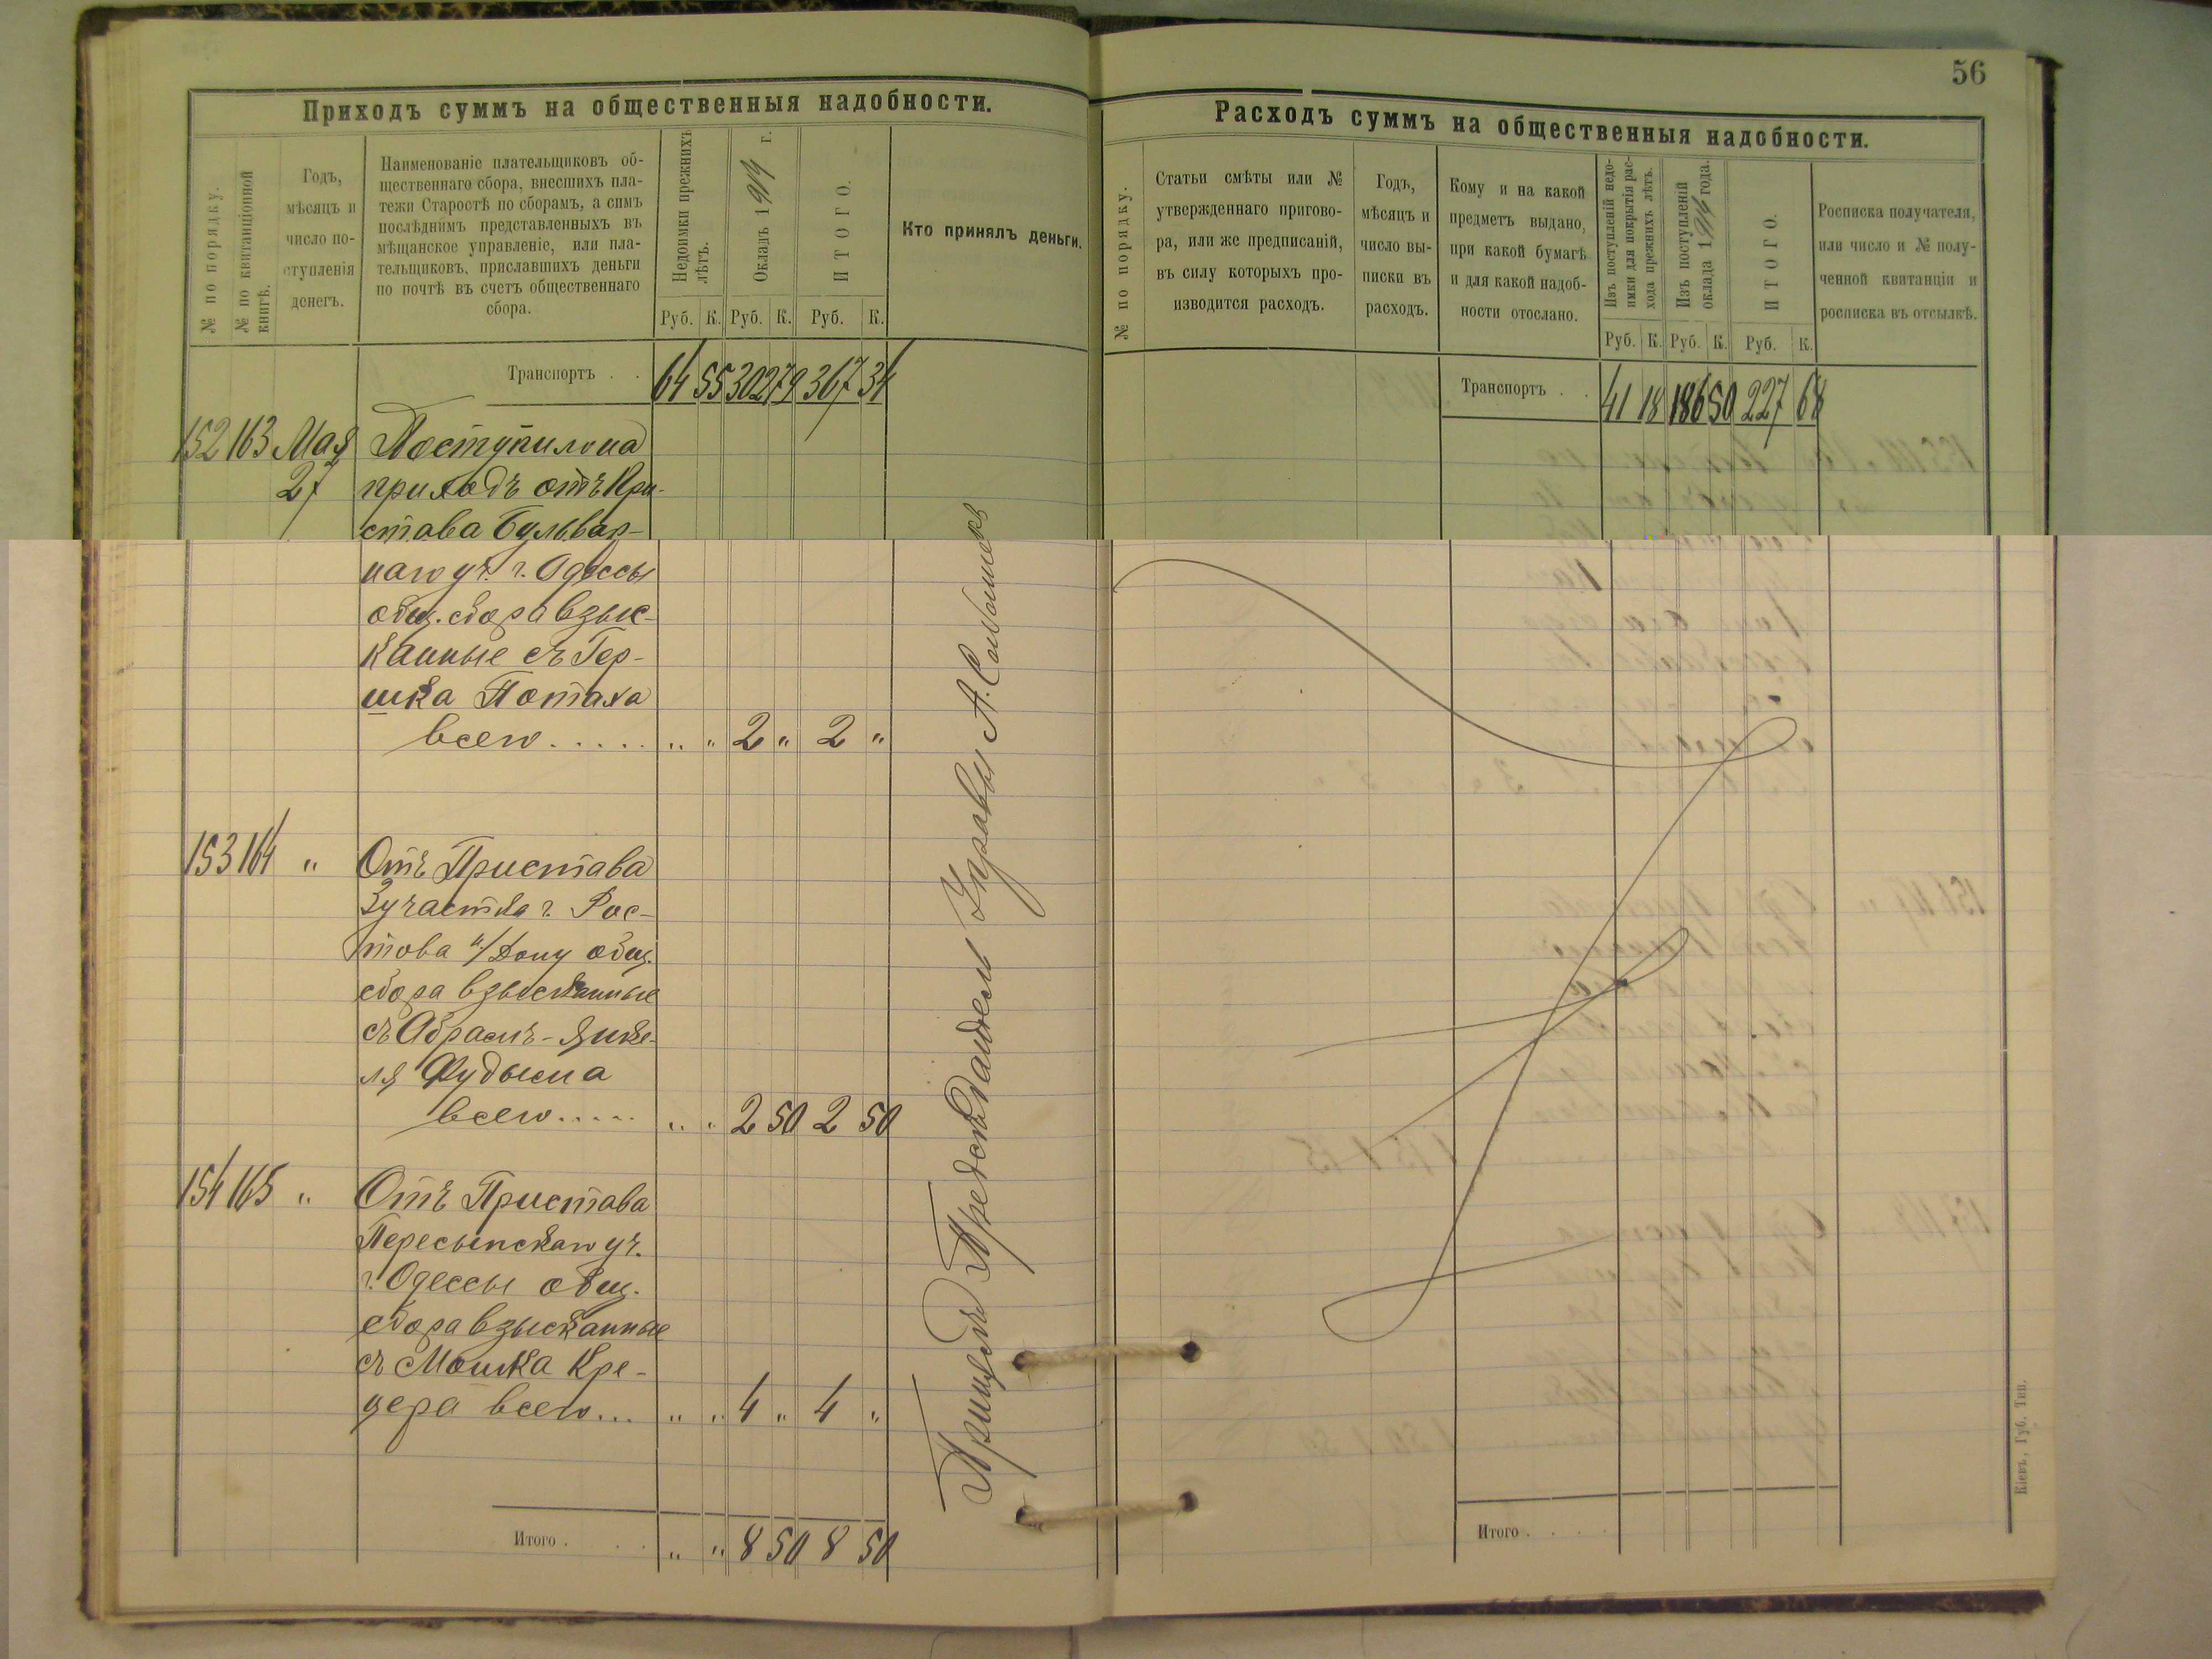 56
Приходъ суммъ на общественныя надобности.
№ по порядку.
№ по квитанціонной
книгѣ.
Годъ,
мѣсяцъ и
число по-
ступленія
денегъ.
Наименованіе плательщиковъ об-
щественнаго сбора, внесшихъ пла-
тежи Старостѣ по сборамъ, а симъ
послѣднимъ представленныхъ въ
мѣщанское управленіе, или пла-
тельщиковъ, приславшихъ деньги
по почтѣ въ счетъ общественнаго
сбора.
Недоимки прежнихъ
лѣтъ.
Окладъ 1914 г.
ИТОГО.
Кто принялъ деньги.
Руб. К. Руб. К. Руб. К.
Транспортъ . . 64 55 302 79 367 34
152 163 Мая Поступило на
27 приходъ отъ При-
става Бульвар-
наго уч. г. Одессы
общ. сбора взыс-
канные съ Гер-
шка Потаха
всего..... " " 2 " 2 "
153 164 " Отъ Пристава
3 участка г. Рос-
това н/Дону общ.
сбора взысканные
съ Абрамъ-Янке-
ля Фудыма
всего..... " " 2 50 2 50
154 165 " Отъ Пристава
Пересыпскаго уч.
г. Одессы общ.
сбора взысканные
съ Мошка Кре-
цера всего... " " 4 " 4 "
Итого . . . " " 8 50 8 50
Предсѣдатель Управы А.
Расходъ суммъ на общественныя надобности.
№ по порядку.
Статьи смѣты или №
утвержденнаго пригово-
ра, или же предписаній,
въ силу которыхъ про-
изводится расходъ.
Годъ,
мѣсяцъ и
число вы-
писки въ
расходъ.
Кому и на какой
предметъ выдано,
при какой бумагѣ
и для какой надоб-
ности отослано.
Изъ поступленій недо-
имки для покрытія рас-
хода прежнихъ лѣтъ.
Изъ поступленій
оклада 1914 года.
ИТОГО.
Росписка получателя,
или число и № полу-
ченной квитанціи и
росписка въ отсылкѣ.
Руб. К. Руб. К. Руб. К.
Транспортъ . . 41 18 186 50 227 68
Итого . . . .
Кіевъ, Губ. Тип.